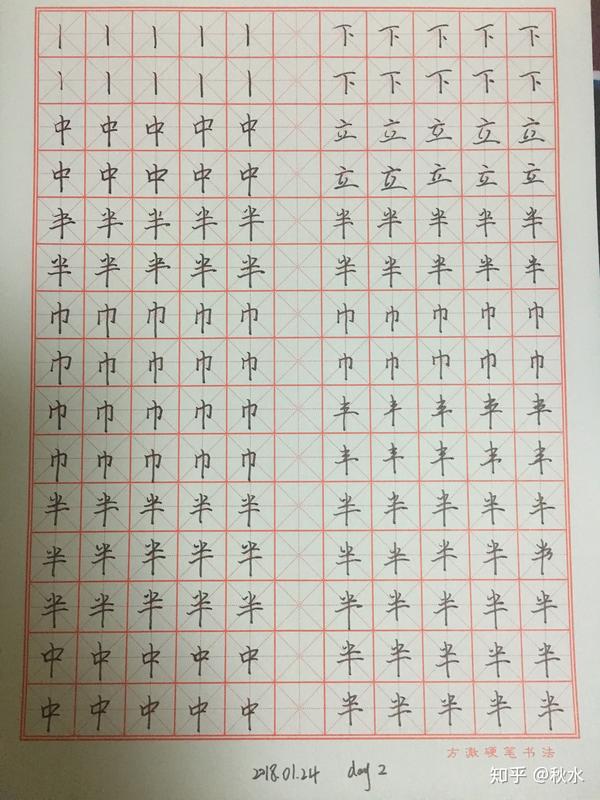 丨 丨 丨 丨 丨 下 下 下 下 下
丨 丨 丨 丨 丨 下 下 下 下 下
中 中 中 中 中 立 立 立 立 立
中 中 中 中 中 立 立 立 立 立
半 半 半 半 半 半 半 半 半
半 半 半 半 半 半 半 半 半 半
巾 巾 巾 巾 巾 巾 巾 巾 巾 巾
巾 巾 巾 巾 巾 巾 巾 巾 巾 巾
巾 巾 巾 巾 巾 丰 丰 丰 丰 丰
巾 巾 巾 巾 巾 丰 丰 丰 丰 丰
半 半 半 半 半 半 半 半 半 半
半 半 半 半 半 半 半 半 半
半 半 半 半 半 半 半 半 半 半
中 中 中 中 中 半 半 半 半 半
中 中 中 中 中 半 半 半 半 半
方漱硬笔书法
2018.01.24 day 2
知乎 @秋水